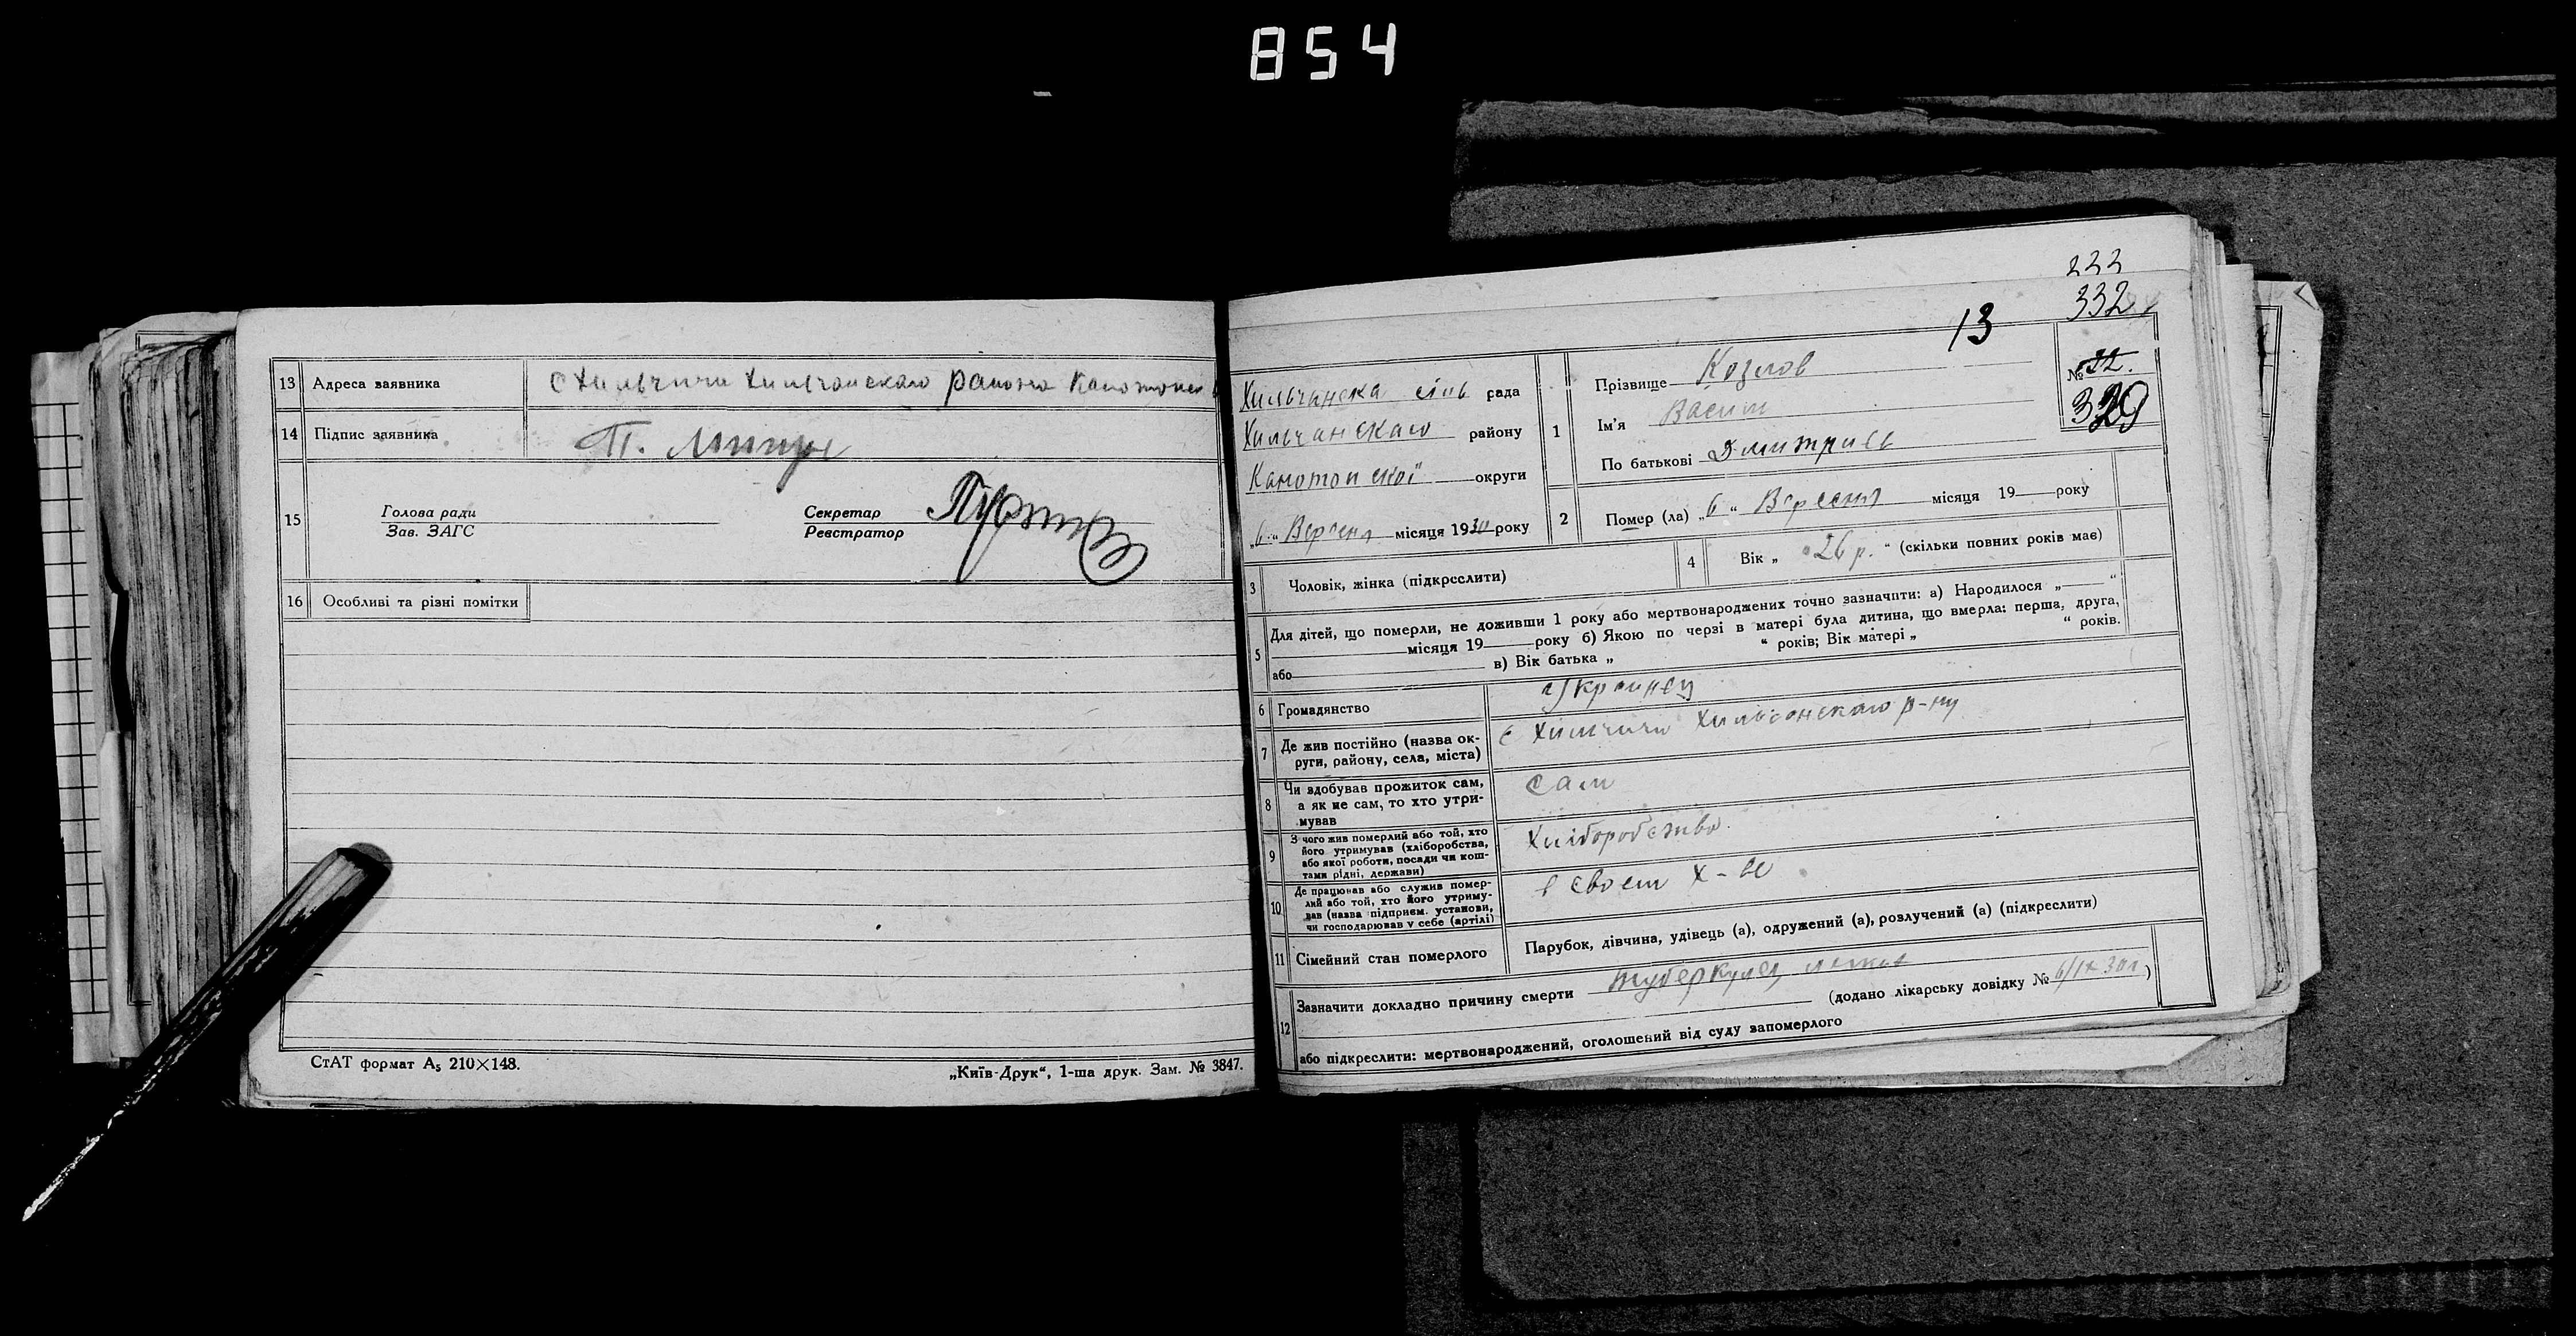 854
13 Адреса заявника с Хильчичи Хильчанскаго района Канотопск
14 Підпис заявника П.
15 Голова ради
Зав. ЗАГС
Секретар
Реєстратор
16 Особливі та різні помітки
СтАТ формат А₅ 210×148.
„Київ-Друк“, 1-ша друк. Зам. № 3847.
332
13
Хильчанска сіль рада
Хильчанскаго району
Канотопскої округи
„6“ Вересня місяця 1930 року
1 Прізвище Козлов
Ім'я Васил
По батькові Дмитриев
№ 32.
329
2 Помер (ла) „6“ Вересня місяця 19 року
3 Чоловік, жінка (підкреслити)
4 Вік „26 р.“ (скільки повних років має)
5 Для дітей, що померли, не доживши 1 року або мертвонароджених точно зазначити: а) Народилося „ “
місяця 19 року б) Якою по черзі в матері була дитина, що вмерла: перша, друга,
або в) Вік батька „ “ років; Вік матері „ “ років.
6 Громадянство Украинец
7 Де жив постійно (назва ок-
руги, району, села, міста) с Хильчичи Хильчанскаго р-ну
8 Чи здобував прожиток сам,
а як не сам, то хто утри-
мував сам
9 З чого жив померлий або той, хто
його утримував (хліборобства,
або якої роботи, посади чи кош-
тами рідні, держави) Хліборобство
10 Де працював або служив помер-
лий або той, хто його утриму-
вав (назва підприєм. установи,
чи господарював у себе (артілі) в своем х-ве
11 Сімейний стан померлого Парубок, дівчина, удівець (а), одружений (а), розлучений (а) (підкреслити)
12 Зазначити докладно причину смерти туберкулез легких
(додано лікарську довідку № 6/IX 30 г.)
або підкреслити: мертвонароджений, оголошений від суду запомерлого